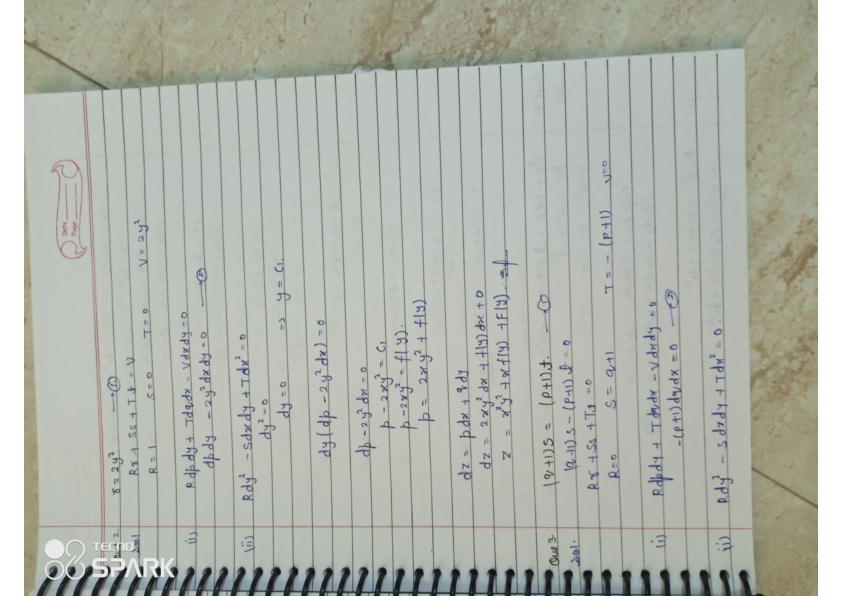 Date
Page
r = 2y² —①
Sol.
Rr + Ss + Tt = V
R = 1 S = 0 T = 0 V = 2y²
i) Rdpdy + Tdqdx - Vdxdy = 0
dpdy - 2y²dxdy = 0 —②
ii) Rdy² - Sdxdy + Tdx² = 0
dy² = 0
dy = 0 ⇒ y = c₁
dy(dp - 2y²dx) = 0
dp - 2y²dx = 0
p - 2xy² = c₁
p - 2xy² = f(y).
p = 2xy² + f(y)
dz = pdx + qdy
dz = 2xy²dx + f(y)dx + 0
z = x²y² + xf(y) + F(y).
Que 3. (q+1)s = (p+1)t. —①
Sol. (q+1)s - (p+1)t = 0
Rr + Ss + Tt = 0
R = 0 S = q+1 T = -(p+1) V = 0
i) Rdpdy + Tdqdx - Vdxdy = 0
-(p+1)dqdx = 0 —②
ii) Rdy² - Sdxdy + Tdx² = 0.
TECNO
SPARK